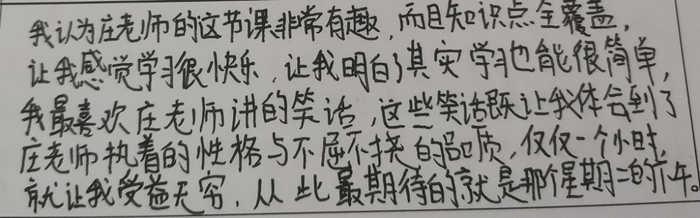 我认为庄老师的这节课非常有趣，而且知识点全覆盖，
让我感觉学习很快乐，让我明白了其实学习也能很简单，
我最喜欢庄老师讲的笑话，这些笑话既让我体会到了
庄老师执着的性格与不屈不挠的品质，仅仅一个小时，
就让我受益无穷，从此最期待的就是那个星期二的下午。